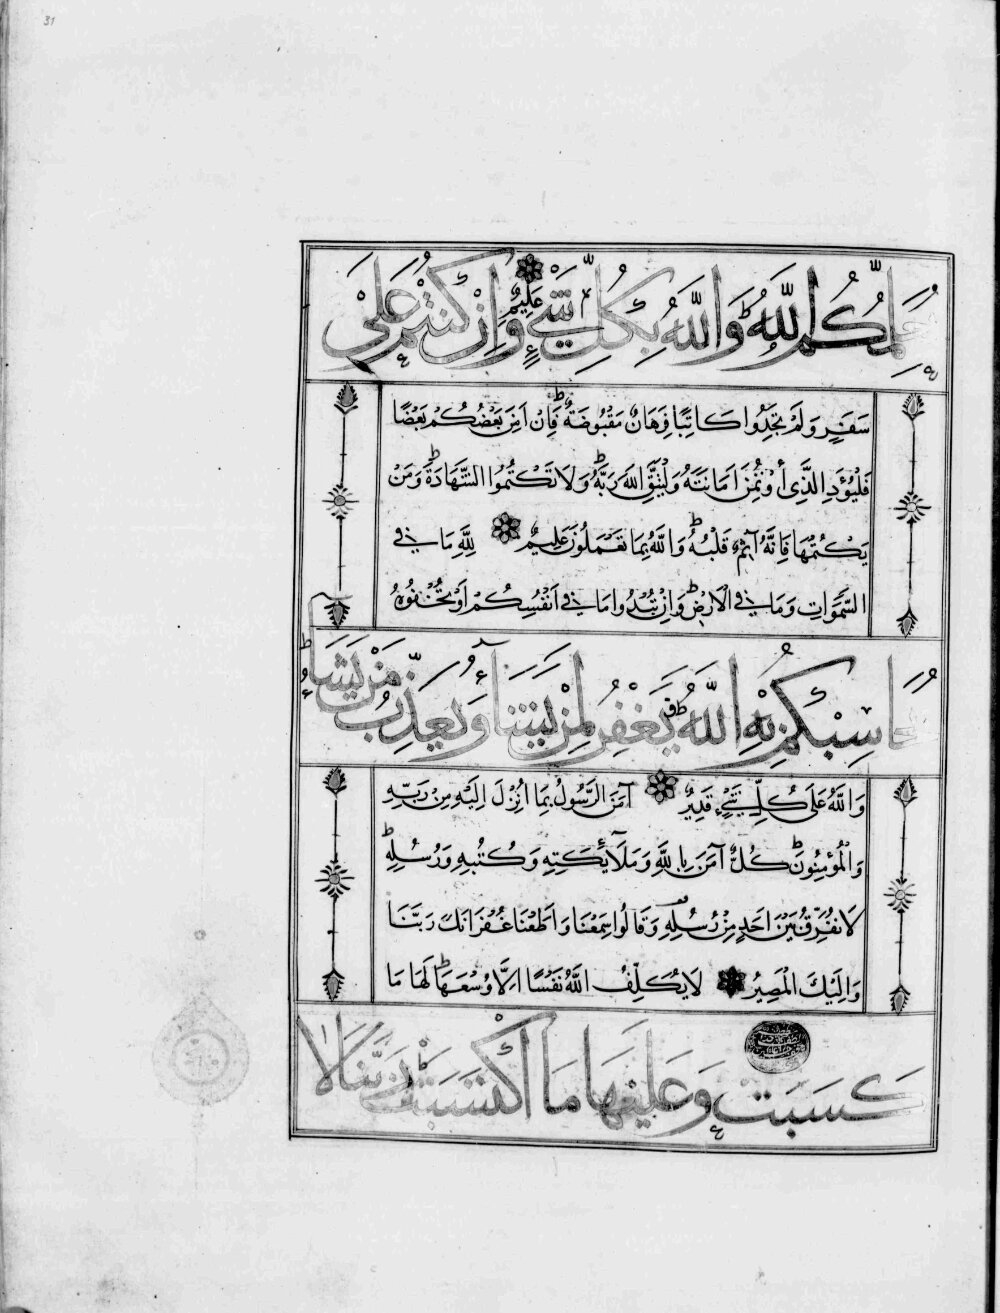 31
يُعَلِّمُكُمُ اللَّهُ وَاللَّهُ بِكُلِّ شَيْءٍ عَلِيمٌ وَإِنْ كُنْتُمْ عَلَىٰ
سَفَرٍ وَلَمْ تَجِدُوا كَاتِبًا فَرِهَانٌ مَقْبُوضَةٌ فَإِنْ أَمِنَ بَعْضُكُمْ بَعْضًا
فَلْيُؤَدِّ الَّذِي أُؤْتُمِنَ أَمَانَتَهُ وَلْيَتَّقِ اللَّهَ رَبَّهُ وَلَا تَكْتُمُوا الشَّهَادَةَ وَمَنْ
يَكْتُمْهَا فَإِنَّهُ آثِمٌ قَلْبُهُ وَاللَّهُ بِمَا تَعْمَلُونَ عَلِيمٌ لِلَّهِ مَا فِي
السَّمٰوَاتِ وَمَا فِي الْأَرْضِ وَإِنْ تُبْدُوا مَا فِي أَنْفُسِكُمْ أَوْ تُخْفُوهُ
يُحَاسِبْكُمْ بِهِ اللَّهُ فَيَغْفِرُ لِمَنْ يَشَاءُ وَيُعَذِّبُ مَنْ يَشَاءُ
وَاللَّهُ عَلَىٰ كُلِّ شَيْءٍ قَدِيرٌ آمَنَ الرَّسُولُ بِمَا أُنْزِلَ إِلَيْهِ مِنْ رَبِّهِ
وَالْمُؤْمِنُونَ كُلٌّ آمَنَ بِاللَّهِ وَمَلَائِكَتِهِ وَكُتُبِهِ وَرُسُلِهِ
لَا نُفَرِّقُ بَيْنَ أَحَدٍ مِنْ رُسُلِهِ وَقَالُوا سَمِعْنَا وَأَطَعْنَا غُفْرَانَكَ رَبَّنَا
وَإِلَيْكَ الْمَصِيرُ لَا يُكَلِّفُ اللَّهُ نَفْسًا إِلَّا وُسْعَهَا لَهَا مَا
كَسَبَتْ وَعَلَيْهَا مَا اكْتَسَبَتْ رَبَّنَا لَا